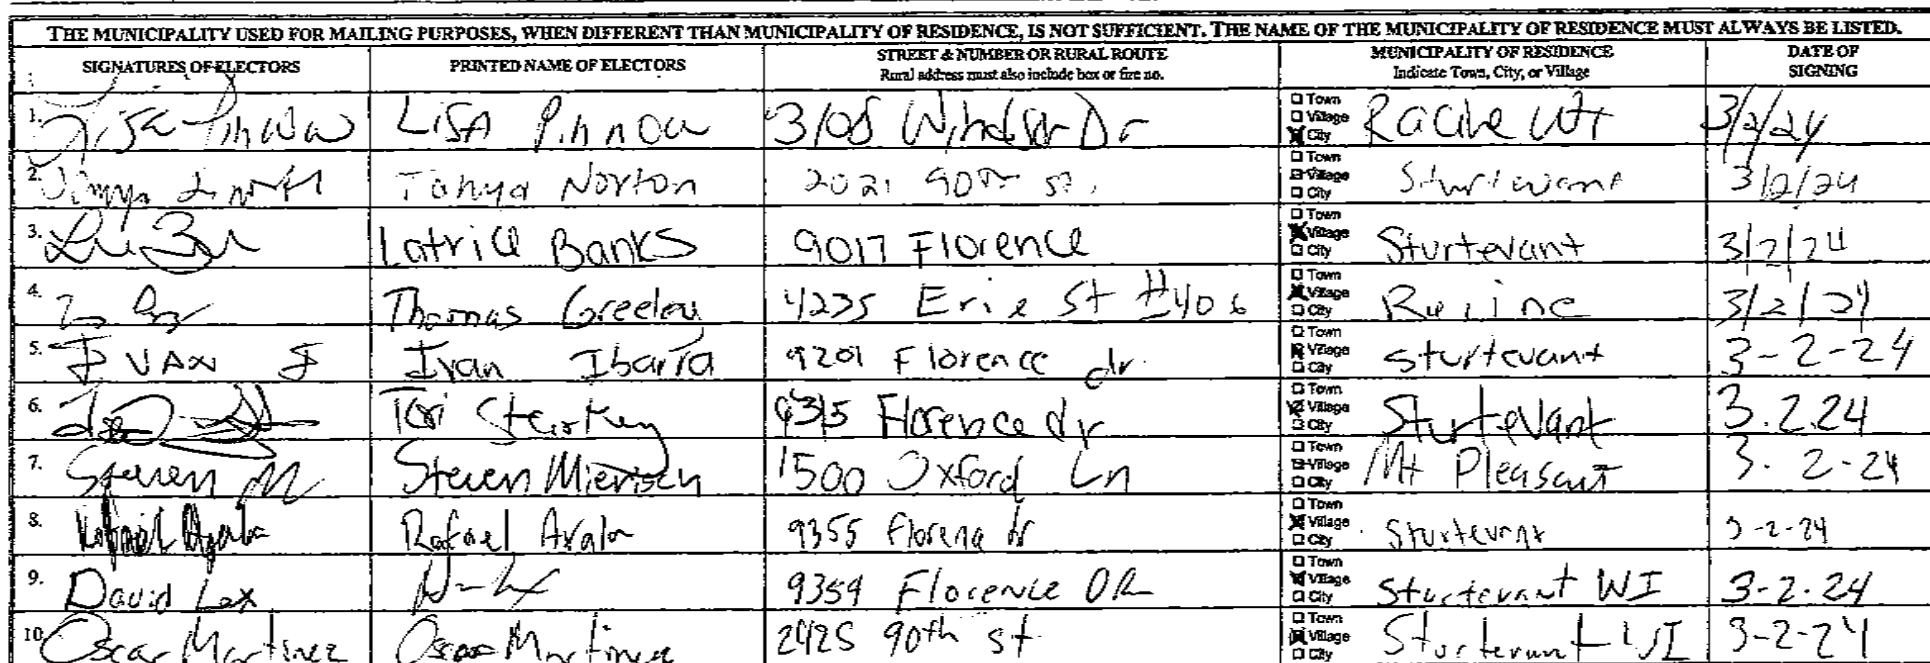 THE MUNICIPALITY USED FOR MAILING PURPOSES, WHEN DIFFERENT THAN MUNICIPALITY OF RESIDENCE, IS NOT SUFFICIENT. THE NAME OF THE MUNICIPALITY OF RESIDENCE MUST ALWAYS BE LISTED.
SIGNATURES OF ELECTORS PRINTED NAME OF ELECTORS STREET & NUMBER OR RURAL ROUTE MUNICIPALITY OF RESIDENCE DATE OF SIGNING
Rural address must also include box or fire no. Indicate Town, City, or Village
1. Lisa Pinnow LiSA Pinnow 3108 Windsor Dr Town Village City Racine WI 3/2/24
2. Tanya Norton 2021 90th st. Town Village City Sturtevant 3/2/24
3. Latrice Banks 9017 Florence Town Village City Sturtevant 3/2/24
4. Thomas Greeley 4235 Erie St #406 Town Village City Racine 3/2/24
5. IVAN Ivan Ibarra 9201 Florence dr. Town Village City Sturtevant 3-2-24
6. Tori Starkey 9315 Florence dr Town Village City Sturtevant 3.2.24
7. Steven M Steven 1500 Oxford Ln Town Village City Mt Pleasant 3.2-24
8. Rafael Ayala Rafael Ayala 9355 dr Town Village City Sturtevant 3-2-24
9. David Lex 9359 Florence DR Town Village City Sturtevant WI 3-2-24
10. Oscar Martinez Oscar Martinez 2425 90th st Town Village City Sturtevant WI 3-2-24